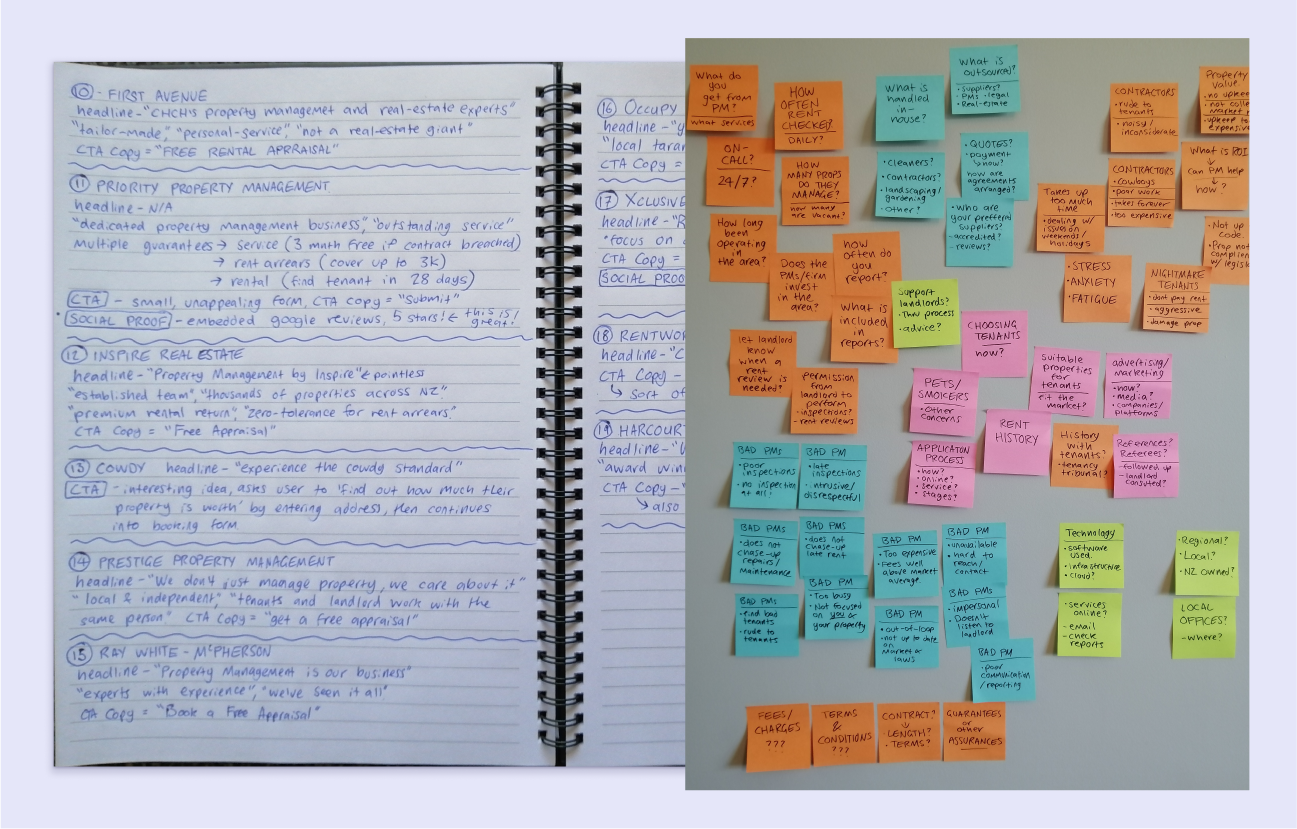 ⑩ - FIRST AVENUE
headline - "CHCH's property managemet and real-estate experts"
"tailor-made", "personal-service", "not a real-estate giant"
CTA Copy = "FREE RENTAL APPRAISAL"
⑪ PRIORITY PROPERTY MANAGEMENT
headline - N/A
"dedicated property management business", "outstanding service"
Multiple guarantees → service (3 month free if contract breached)
→ rent arrears (cover up to 3k)
→ rental (find tenant in 28 days)
CTA - small, unappealing form, CTA copy = "Submit"
SOCIAL PROOF - embedded google reviews, 5 stars! ← this is great!
⑫ INSPIRE REAL ESTATE
headline - "Property Management by Inspire" ← pointless
"established team", "thousands of properties across NZ"
"premium rental return", "zero-tolerance for rent arrears"
CTA Copy = "Free Appraisal"
⑬ COWDY headline - "experience the cowdy standard"
CTA - interesting idea, asks user to 'find out how much their
property is worth' by entering address, then continues
into booking form
⑭ PRESTIGE PROPERTY MANAGEMENT
headline - "We don't just manage property, we care about it"
"local & independent", "tenants and landlord work with the
same person" CTA Copy = "get a free appraisal"
⑮ RAY WHITE - McPHERSON
headline - "Property Management is our business"
"experts with experience", "we've seen it all"
CTA Copy = "Book a Free Appraisal"
⑯ OCCUPY
headline - "y
"local
CTA Copy =
⑰ XCLUSIVE
headline - "R
"focus on
CTA Copy =
SOCIAL PROOF
⑱ RENTWO
headline - "C
CTA Copy -
↳ sort of
⑲ HARCOURT
headline - "
"award win
CTA Copy - "
↳ also
What do
you
get from
PM?
what services
HOW
OFTEN
RENT
CHECKED?
DAILY?
ON-
CALL?
24/7?
HOW
MANY PROPS
DO THEY
MANAGE?
how many
are vacant?
How long
been
operating
in the
area?
Does the
PMs/firm
invest
in the
area?
how
often do
you
report?
What is
included
in
reports?
What is
handled
in-
house?
What is
outsourced?
• suppliers?
• PMs • legal
• Real-estate
• cleaners?
• contractors?
• landscaping/
gardening
• Other?
• QUOTES?
• payment
↳ how?
how are
agreements
arranged?
• Who are
your prefferd
suppliers?
- accredited?
- reviews?
Support
landlords?
• TWN process
• advice?
CONTRACTORS
• rude to
tenants
• noisy/
inconsiderate
Property
value
• no upkee
• not colle
market r
• upkeep to
expensive
CONTRACTORS
• cowboys
• poor work
• takes forever
• too expensive
What is ROI
↓
can PM help
↓
how?
Takes up
too much
time
• dealing w/
issues on
weekends/
holidays
• Not up
Code.
• Prop not
complien
w/ legisl
• STRESS
• ANXIETY
• FATIGUE
NIGHTMARE
TENANTS
• dont pay rent
• aggressive
• damage prop
let landlord
know
when a
rent
review is
needed?
permission
from
landlord to
perform
- inspections?
- rent reviews
CHOOSING
TENANTS
how?
PETS/
SMOKERS
• Other
concerns
suitable
properties
for
tenants
fit the
market?
advertising/
marketing
• how?
• media?
• companies/
platforms
RENT
HISTORY
APPLICATION
PROCESS
• how?
• online?
• service?
• stages?
History
with
tenants?
• tenancy
tribunal?
References?
Referees?
- followed up
- landlord
consulted?
BAD PMs
• poor
inspections
• no inspection
at all!
BAD PMs
• late
inspections
• intrusive/
disrespectful
BAD PMs
• does not
chase-up
repairs/
Maintenance
BAD PMs
• does not
chase-up
late rent
BAD PM
• Too expensive
• Fees well
above market
average.
BAD PM
• unavailable
• hard to
reach/
contact
BAD PMs
• find bad
tenants
• rude to
tenants
BAD PM
• Too busy
• Not focused
on you or
your property
BAD PM
• out-of-loop
• not up to date
on
Market or
laws
BAD PM
• impersonal
• Doesn't
listen to
landlord
BAD PM
• poor
communication
/reporting
Technology
• software
used.
• infrastructure
• cloud?
• Regional?
• Local?
• NZ owned?
• services
online?
- email
- check
reports
LOCAL
OFFICES?
- where?
FEES/
CHARGES
???
TERMS
&
CONDITIONS
???
CONTRACT?
↓
• LENGTH?
• TERMS?
GUARANTEES
or
other
ASSURANCES